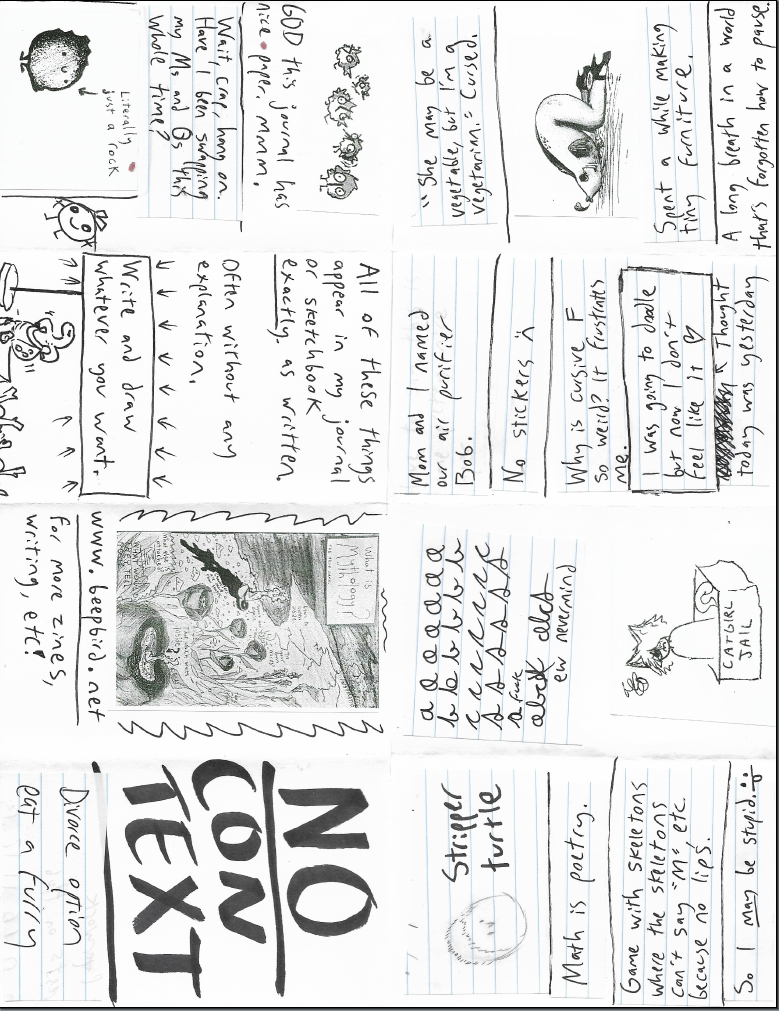 NO
CON
TEXT
Divorce option
eat a furry
Stripper
turtle
Math is poetry.
Game with skeletons
where the skeletons
can't say "M" etc.
because no lips.
So I may be stupid.
a a a a a a
b b b b b b
c c c c c c c
s s s s s s
a fuck
ew nevermind
CATGIRL
JAIL
Mom and I named
our air purifier
Bob.
No stickers :(
Why is cursive F
so weird? It frustrates
me.
I was going to doodle
but now I don't
feel like it ♡
↖ Thought
today was yesterday
"She may be a
vegetable, but I'm a
vegetarian." Cursed.
Spent a while making
tiny furniture.
A long breath in a world
that's forgotten how to pause.
GOD this journal has
nice paper. Mmm.
Wait, crap, hang on.
Have I been swapping
my Ms and Qs this
whole time?
Literally
just a rock
All of these things
appear in my journal
or sketchbook
exactly as written.
Often without any
explanation.
Write and draw
whatever you want.
What is
Mythology?
www.beepbird.net
for more zines,
writing, etc!